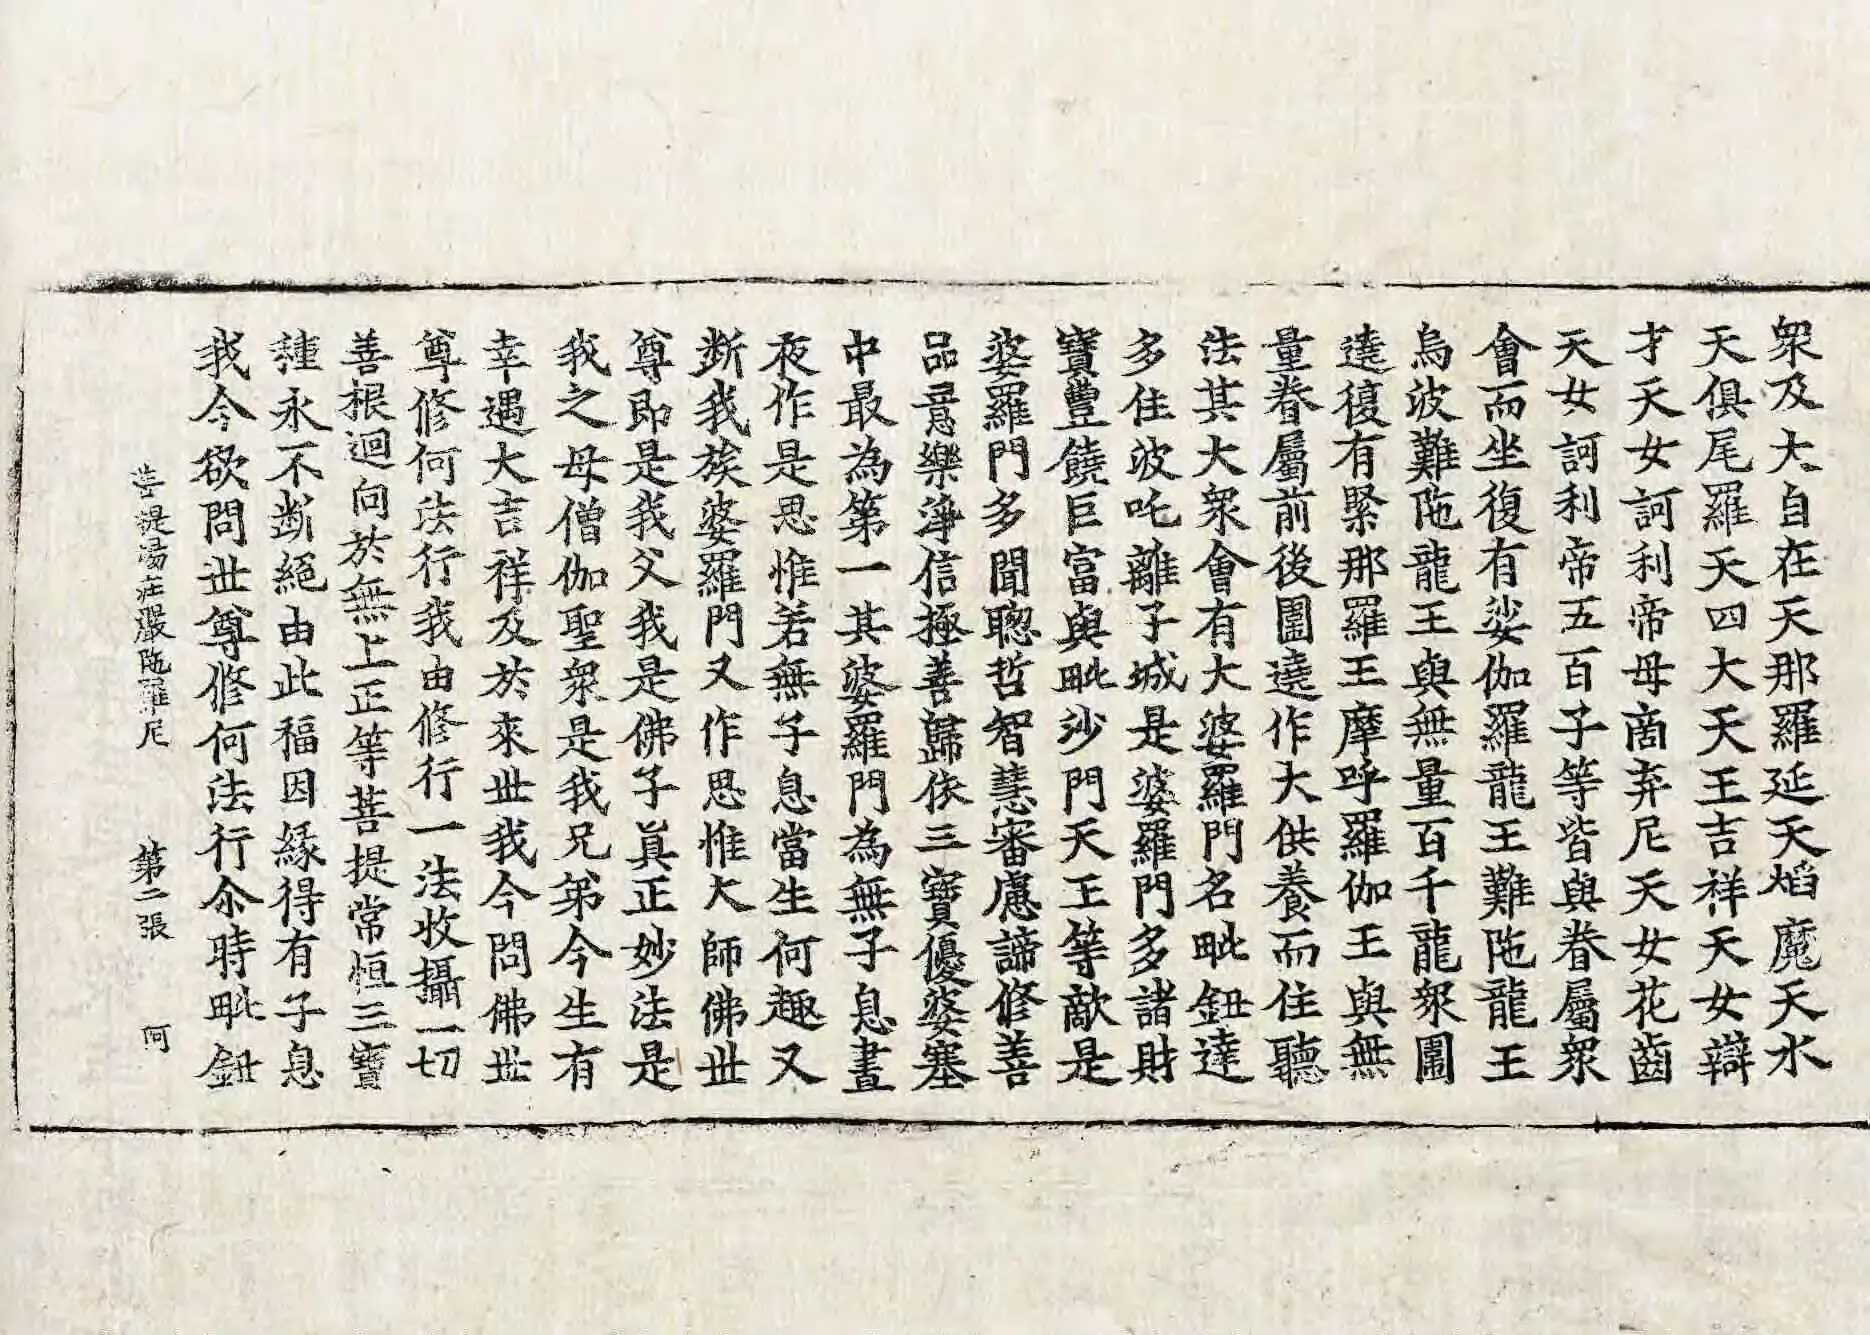 衆及大自在天那羅延天焰魔天水
天俱尾羅天四大天王吉祥天女辯
才天女訶利帝母啇弃尼天女花齒
天女訶利帝五百子等皆與眷屬衆
會而坐復有娑伽羅龍王難陁龍王
烏波難陁龍王與無量百千龍衆圍
遶復有緊那羅王摩呼羅伽王與無
量眷屬前後圍遶作大供養而住聽
法其大衆會有大婆羅門名毗鈕達
多住波吒離子城是婆羅門多諸財
寶豊饒巨富與毗沙門天王等敵是
婆羅門多聞聰哲智慧審慮諦修善
品意樂淨信極善歸依三寶優婆塞
中最為第一其婆羅門為無子息晝
夜作是思惟若無子息當生何趣又
断我族婆羅門又作思惟大師佛世
尊即是我父我是佛子真正妙法是
我之母僧伽聖衆是我兄弟今生有
幸遇大吉祥及於來世我今問佛世
尊修何法行我由修行一法收攝一切
善根迴向於無上正等菩提常恒三寶
種永不断絕由此福因緣得有子息
我今欲問世尊修何法行尒時毗鈕
菩提場莊嚴陁羅尼 第二張 阿